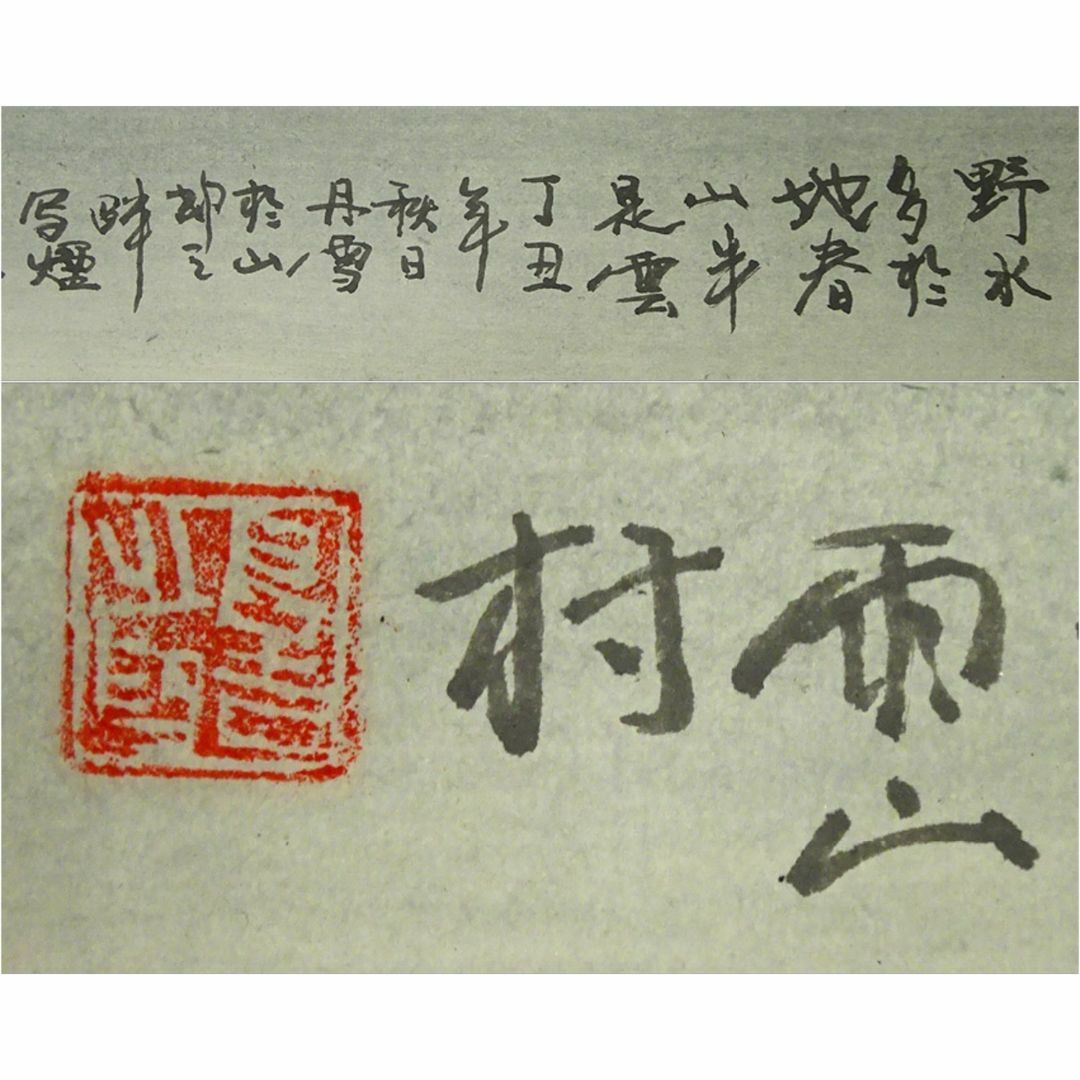 野水
多於
地春
山半
是雲
丁丑
年
秋日
丹雪
於山
部之
畔
写煙
雨山
村